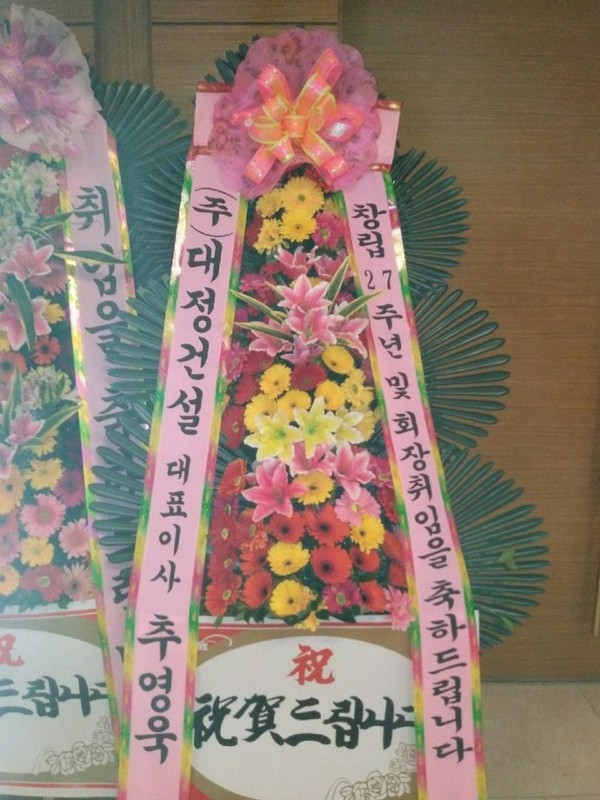 취임을 축
祝
드립니다
(주)대정건설 대표이사 추영욱
창립 27주년 및 회장취임을 축하드립니다
祝
祝賀드립니다